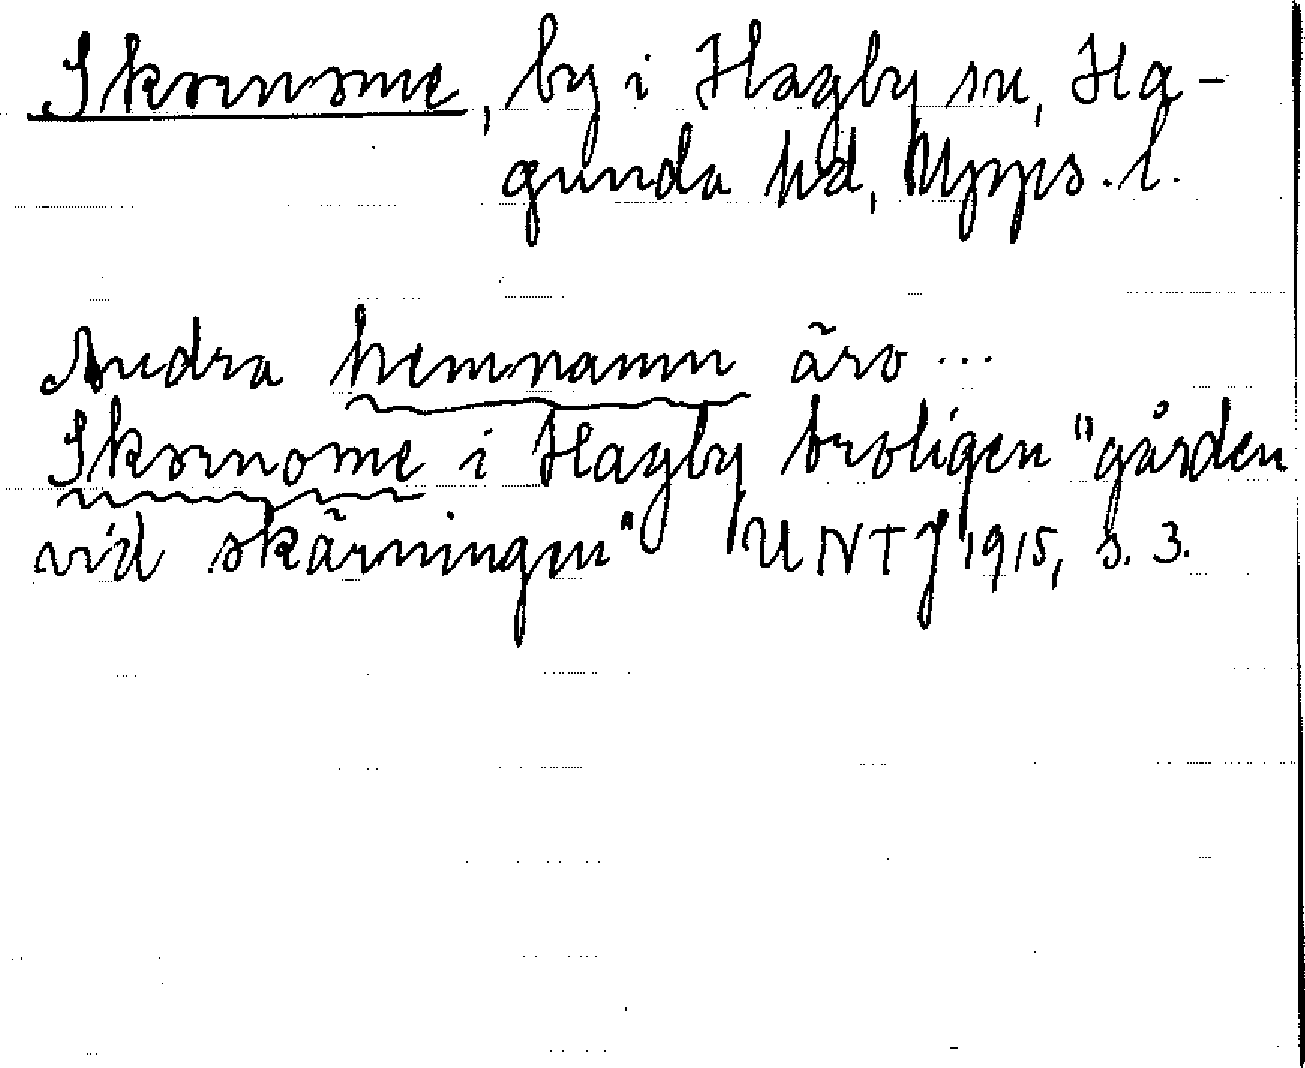 Skornome, by i Hagby sn, Ha-
gunda hd, Upps. l.
Andra hemnamn äro ...
Skornome i Hagby troligen "gården
vid skärningen" UNTJ 1915, s. 3.